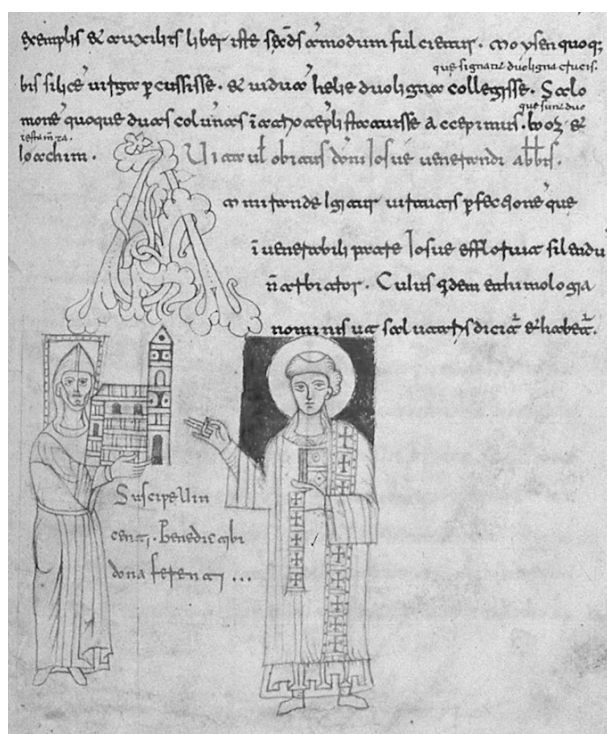 exemplis & auxiliis liber iste scds ammodum fulcietur. Moysen quoq;
que signant duo ligna crucis.
bis silice uirga pcussisse. & uidua helie duo ligna collegisse. Salo
que sunt duo
mone quoque duas colunas i atrio tepli statuisse accepimus. booz &
testam ta.
Ioachim. Vita ul obitus domi Iosue uenerandi abbis.
A miranda igitur uirtutis pfectione que
i uenerabili patre Iosue effloruit silendu
n arbitror. Cuius qdem ethimologia
nominis ut saluatoris dicit & habet.
Suscipe Uin
centi. Benedic tibi
dona ferenti ...